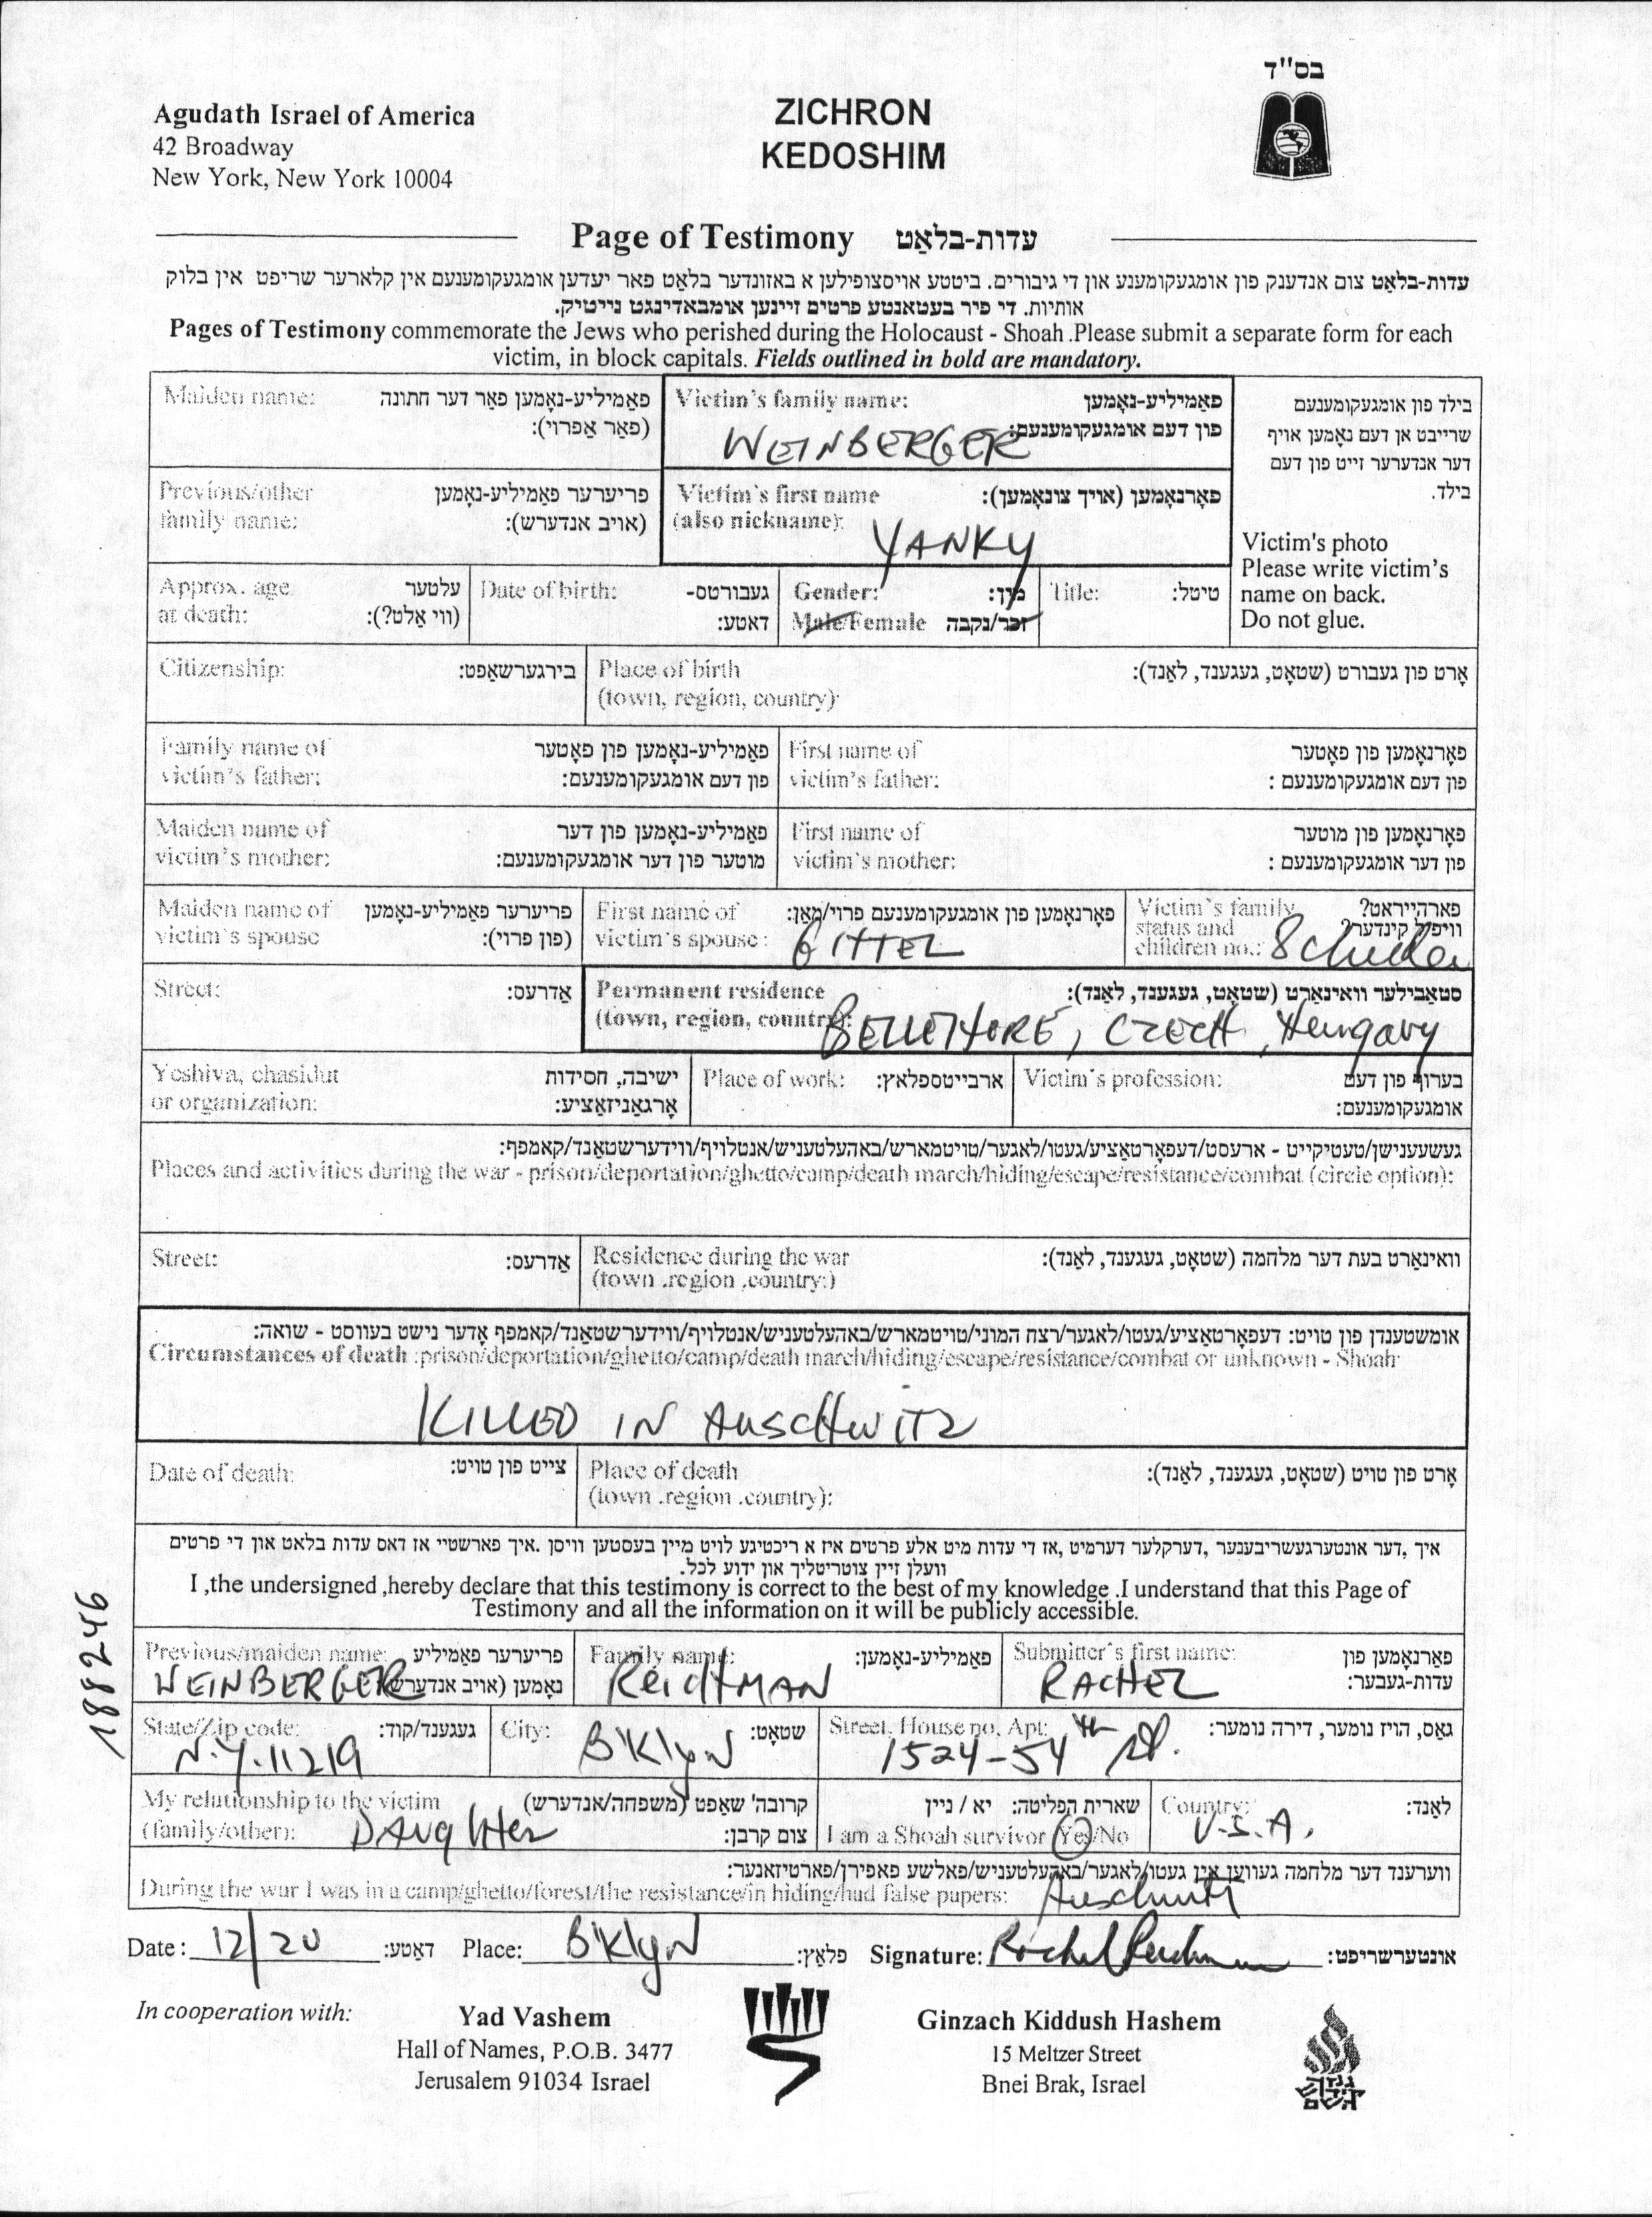 בס"ד
Agudath Israel of America
42 Broadway
New York, New York 10004
ZICHRON
KEDOSHIM
Page of Testimony עדות-בלאַט
עדות-בלאַט צום אנדענק פון אומגעקומענע און די גיבורים. ביטטע אויסצופילען א באזונדער בלאַט פאר יעדען אומגעקומענעם אין קלארער שריפט אין בלוק
אותיות. די פיר בעטאנטע פרטים זיינען אומבאדינגט נייטיק.
Pages of Testimony commemorate the Jews who perished during the Holocaust - Shoah .Please submit a separate form for each
victim, in block capitals. Fields outlined in bold are mandatory.
Maiden name: פאַמיליע-נאָמען פאר דער חתונה
(פאר אַפרוי):
Victim's family name: פאַמיליע-נאָמען
פון דעם אומגעקומענעם:
WEINBERGER
בילד פון אומגעקומענעם
שרייבט אן דעם נאָמען אויף
דער אנדערער זייט פון דעם
בילד.
Victim's photo
Please write victim's
name on back.
Do not glue.
Previous/other פריערער פאַמיליע-נאָמען
family name: (אויב אנדערש):
Victim's first name פאָרנאָמען (אויך צונאָמען):
(also nickname):
YANKY
Approx. age עלטער
at death: (ווי אַלט?):
Date of birth: געבורטס-
דאטע:
Gender: מין:
Male/Female זכר/נקבה
Title: טיטל:
Citizenship: בירגערשאַפט:
Place of birth אָרט פון געבורט (שטאָט, געגענד, לאַנד):
(town, region, country):
Family name of פאַמיליע-נאָמען פון פאָטער
victim's father: פון דעם אומגעקומענעם:
First name of פאָרנאָמען פון פאָטער
victim's father: פון דעם אומגעקומענעם :
Maiden name of פאַמיליע-נאָמען פון דער
victim's mother: מוטער פון דער אומגעקומענעם:
First name of פאָרנאָמען פון מוטער
victim's mother: פון דער אומגעקומענעם :
Maiden name of פריערער פאַמיליע-נאָמען
victim's spouse (פון פרוי):
First name of פאָרנאָמען פון אומגעקומענעם פרוי/מאַן:
victim's spouse: GITTEL
Victim's family פארהייראט?
status and וויפיל קינדער?
children no.: 8
Street: אַדרעס:
Permanent residence סטאַבילער וואינאָרט (שטאָט, געגענד, לאַנד):
(town, region, country):
CZECH, Hungary
Yeshiva, chasidut ישיבה, חסידות
or organization: אָרגאַניזאַציע:
Place of work: ארבייטספלאץ:
Victim's profession: בערוף פון דעם
אומגעקומענעם:
געשעענישן/טעטיקייט - ארעסט/דעפאָרטאַציע/געטו/לאגער/טויטמארש/באהעלטעניש/אנטלויף/ווידערשטאַנד/קאמפף:
Places and activities during the war - prison/deportation/ghetto/camp/death march/hiding/escape/resistance/combat (circle option):
Street: אַדרעס:
Residence during the war וואינאַרט בעת דער מלחמה (שטאָט, געגענד, לאַנד):
(town .region .country:)
אומשטענדן פון טויט: דעפאָרטאַציע/געטו/לאגער/רצח המוני/טויטמארש/באהעלטעניש/אנטלויף/ווידערשטאַנד/קאמפף אָדער נישט בעווסט - שואה:
Circumstances of death :prison/deportation/ghetto/camp/death march/hiding/escape/resistance/combat or unknown - Shoah
KILLED IN AUSCHWITZ
Date of death: צייט פון טויט:
Place of death אָרט פון טויט (שטאָט, געגענד, לאַנד):
(town .region .country):
איך ,דער אונטערגעשריבענער ,דערקלער דערמיט ,אז די עדות מיט אלע פרטים איז א ריכטיגע לויט מיין בעסטען וויסן .איך פארשטיי אז דאס עדות בלאט און די פרטים
וועלן זיין צוטריטליך און ידוע לכל.
I ,the undersigned ,hereby declare that this testimony is correct to the best of my knowledge .I understand that this Page of
Testimony and all the information on it will be publicly accessible.
188246
Previous/maiden name: פריערער פאַמיליע
נאָמען (אויב אנדערש
WEINBERGER
Family name: פאַמיליע-נאָמען:
REICHMAN
Submitter's first name: פאָרנאָמען פון
עדות-געבער:
RACHEL
State/Zip code: געגענד/קוד:
N.Y. 11219
City: שטאָט:
B'Klyn
Street, House no, Apt: גאַס, הויז נומער, דירה נומער:
1524-54th St.
My relationship to the victim קרובה' שאַפט (משפחה/אנדערש)
(family/other): DAUGHTER צום קרבן:
שארית הפליטה: יא / ניין
I am a Shoah survivor Yes/No
Country: לאַנד:
U.S.A.
ווערענד דער מלחמה געווען אין געטו/לאגער/באהעלטעניש/פאלשע פאפירן/פארטיזאנער:
During the war I was in a camp/ghetto/forest/the resistance/in hiding/had false papers: Auschwitz
Date: 12/20 דאטע: Place: B'Klyn פלאַץ: Signature: Rachel Reichman אונטערשריפט:
In cooperation with:
Yad Vashem
Hall of Names, P.O.B. 3477
Jerusalem 91034 Israel
Ginzach Kiddush Hashem
15 Meltzer Street
Bnei Brak, Israel